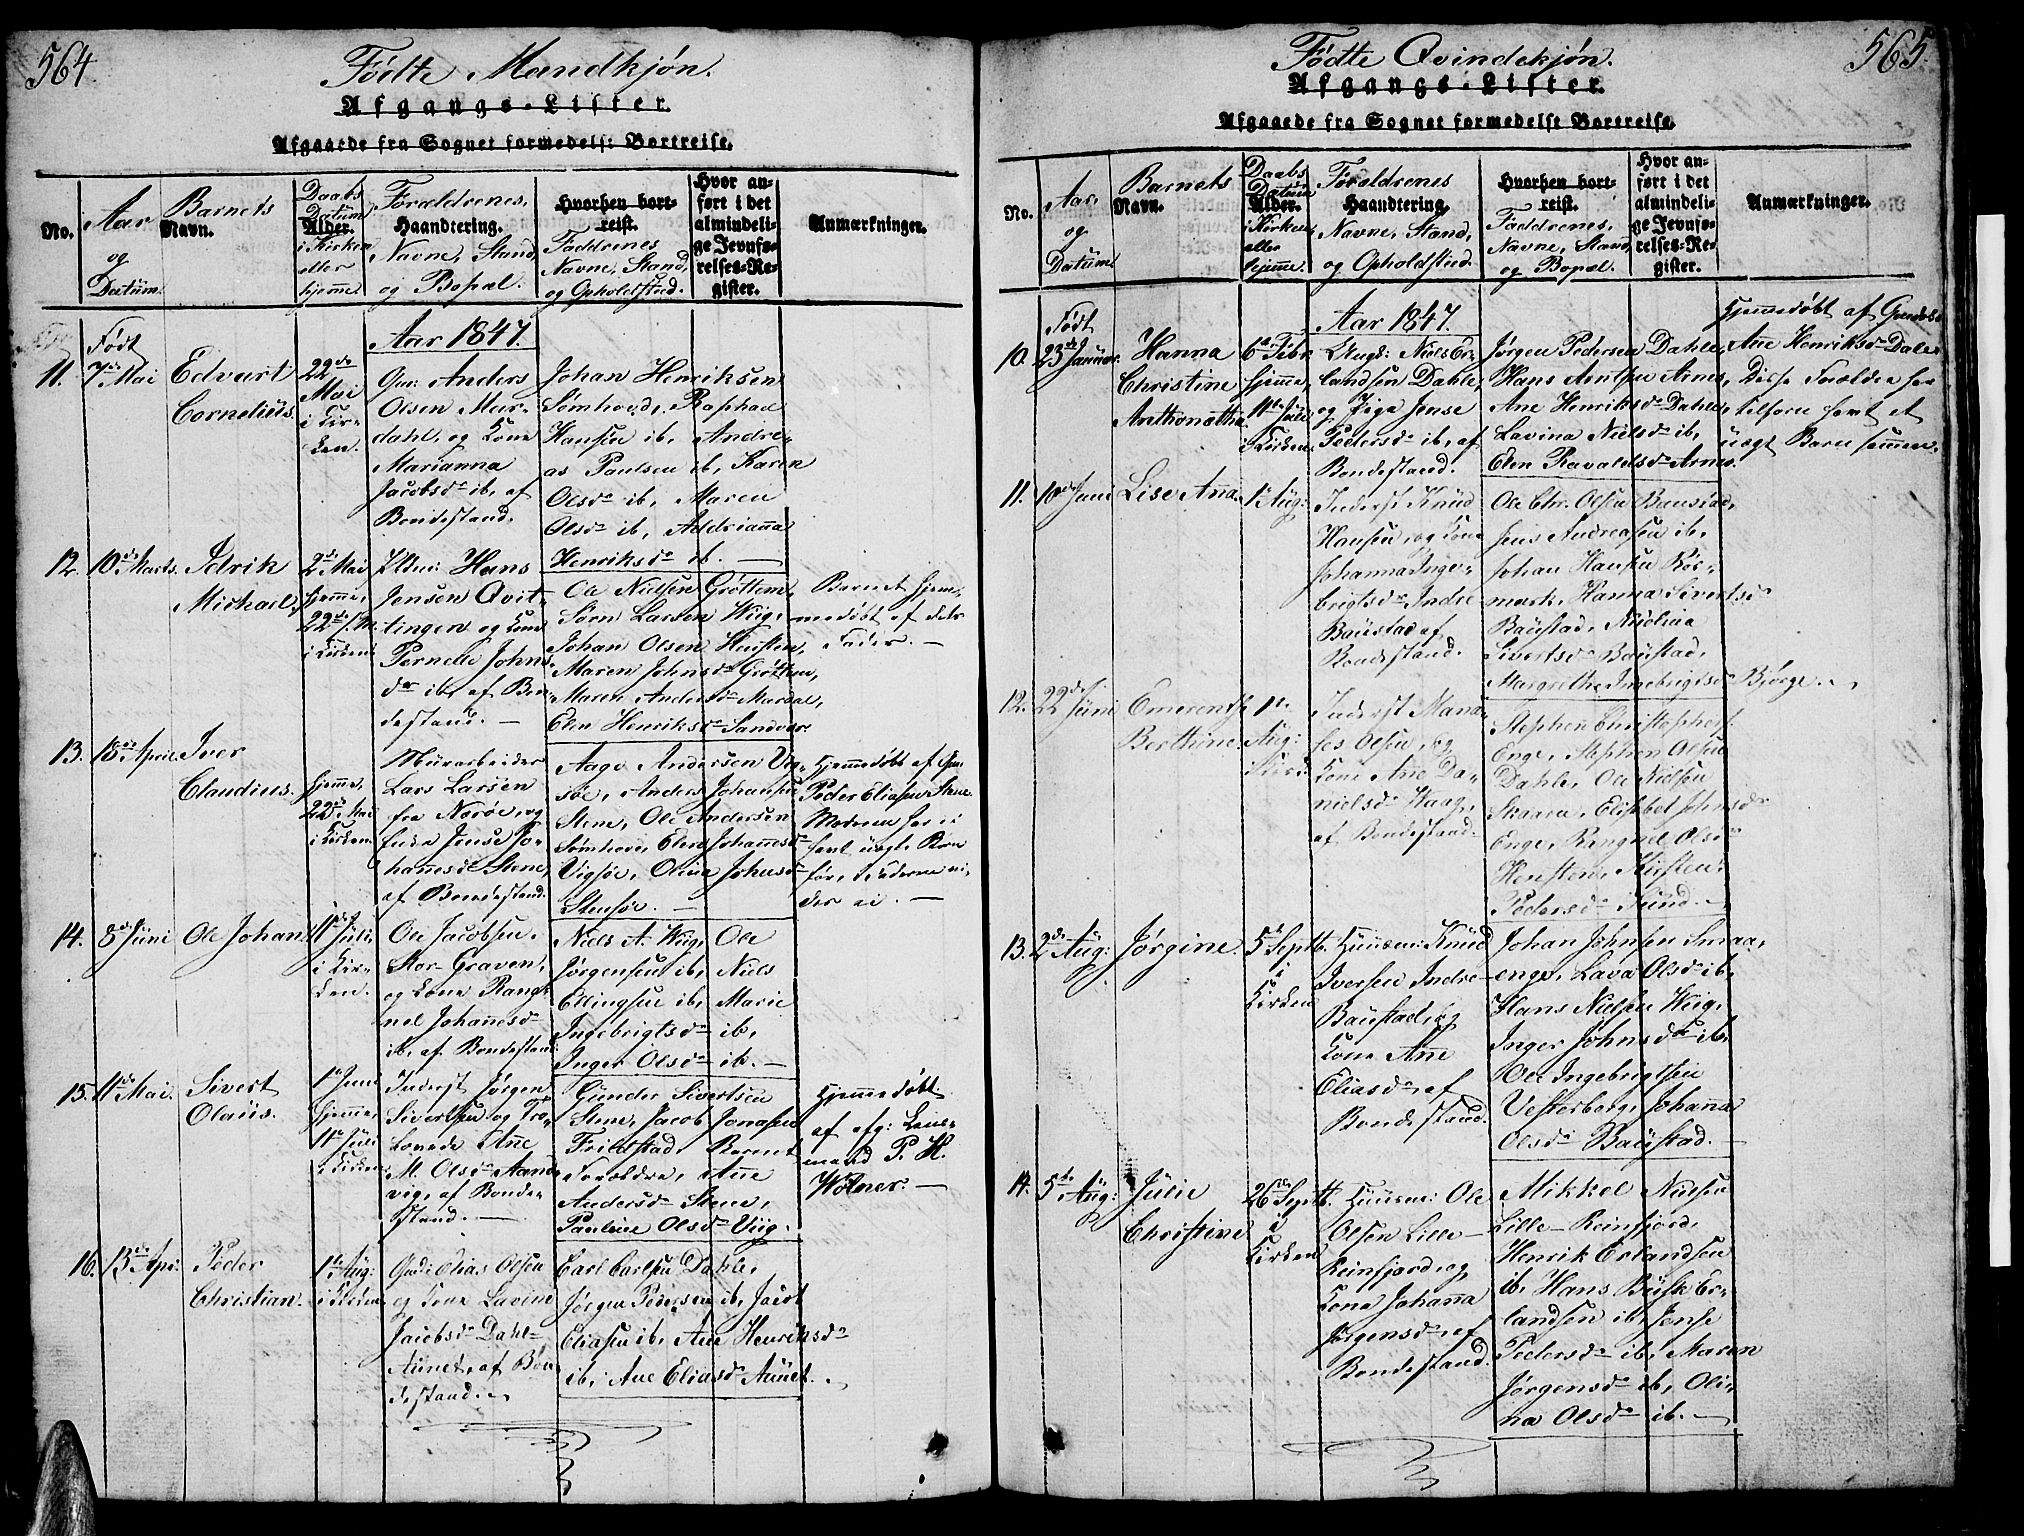 564.
Födte Mandkjön.
Afgangs-Lister.
Afgaaede fra Sognet formedelst Bortreise.
No.
Aar
og
Datum.
Barnets
Navn.
Daabs
Datum
Alder.
i Kirken
eller
hjemme.
Forældrenes
Haandtering.
Navne, Stand,
og Bopæl.
Hvorhen bort-
reist.
Faddrenes
Navne, Stand,
og Opholdsted.
Hvor an-
ført i det
almindeli-
ge Jevnfø-
relses-Re-
gister.
Anmærkninger.
Aar 1847.
11.
Född
7de Mai
Edvart
Cornelius.
22de
Mai
i Kir-
ken.
Gm: Anders
Olsen Mur-
dahl, og Kone
Marianna
Jacobsdr ib, af
Bondestand.
Johan Henriksen
Sömhovd, Raphael
Hansen ib, Andre-
as Paulsen ib, Karen
Olsdr ib, Maren
Olsdr ib, Addrianna
Henriksdr ib. —
12.
10de Marts.
Idrik
Michael,
2de Mai
hjemme,
22de s. M.
i Kirken.
Hans
Jensen Qvit-
tingen og Kone
Pernelle Johns
dr ib, af Bon-
destand. —
Ole Nielsen Gröttem,
Sörn Larsen Wiig,
Johan Olsen Hursten,
Maren Johnsdr Gröttem,
Maren Andersdr Mardal,
Elen Henriksdr Sandvær.
Barnet hjem-
medöbt af dets
Fader. —
13.
18de April.
Iver
Claudius.
hjemme,
22de Mai
i Kirken.
Murarbeider
Lars Larsen
fra Noröe, og
Enke Jense Jo-
hannesdr Stene,
af Bondestand.
Aage Andersen Vig-
söe, Anders Johansen
Stene, Ole Andersen
Sömhovd, Elen Johannesdr
Vigsöe, Olina Johnsdr
Stensöe. —
Hjemmedöbt af Gm
Peder Eliasen Stene.
Moderen har ei
havt uægt. Barn
för, Faderen vi-
des ei. —
14.
8de Juni
Ole Johan
11te Juli
i Kir-
ken.
Ole Jacobsen,
Stor-Graven,
og Kone Rang-
nel Johannesdr
ib, af Bondestand.
Niels A. Wiig, Ole
Jörgensen ib, Niels
Ellingsen ib, Marie
Ingebrigtsdr ib,
Inger Olsdr ib. —
15.
11de Mai.
Sivert
Olaus.
1te Juni
hjemme,
11te Juli
i Kirken.
Inderst Jörgen
Sivertsen og Tro-
lovede Ane
M. Olsdr Aand-
vig, af Bonde-
stand. —
Gunder Sivertsen
Stene, Jacob Jonasen
Frielstad, Barnets
Forældre, Ane
Andersdr Stene,
Pauline Olsdr Viig.
Hjemmedöbt
af afg: Lens-
mand P. H.
Wölner. —
16.
13de Apr:
Peder
Christian.
1te Aug:
i Kirken.
Gmd: Elias Olsen
og Kone Lavine
Jacobsdr Dahl-
Aunet, af Bon-
destand. —
Carl Carlsen Dahle,
Jörgen Pedersen ib, Jacob
Eliasen ib, Ane Henriksdr
ib, Ane Eliasdr Aunet.
565.
Födte Qvindekjön.
Afgangs-Lister.
Afgaaede fra Sognet formedelst Bortreise.
No.
Aar
og
Datum.
Barnets
Navn.
Daabs
Datum
Alder.
i Kirken
eller
hjemme.
Forældrenes
Haandtering.
Navne, Stand,
og Opholdsted.
Hvorhen bort-
reist.
Faddrenes,
Navne, Stand,
og Bopæl.
Hvor an-
ført i det
almindeli-
ge Jevnfø-
relses-Re-
gister.
Anmærkninger.
Aar 1847.
10.
Född
23de Januar.
Hanna
Christine
Anthonetha
6te Febr.
hjemme,
11te Juli
i Kirken.
Ungk: Niels Er-
landsen Dahle,
og Pige Jense
Pedersdr ib, af
Bondestand.
Jörgen Pedersen Dahle,
Hans Arntsen Arnes,
Ane Henriksdr Dahle,
Lavina Nielsdr ib,
Elen Ravaldsdr Arnes.
Hjemmedöbt af
Ane Henriksdr Dale.
Disse Forældre har
tilforn havt et
uægt Barn sammen.
11.
10de Juni
Lise Anna.
1te Aug:
Inderst Knud
Hansen, og Kone
Johanna Inge-
brigtsdr Indre
Baustad af
Bondestand.
Ole Chr. Olsen Baustad,
Jens Andreasen ib,
Johan Hansen Rör-
mark, Hanna Sivertsdr
Baustad, Nicolina
Sivertsdr Baustad,
Margrethe Ingebrigtsdr Björge.
12.
22de Juni
Emerentze
Berthine
1te
Aug:
Inderst Mana-
ses Olsen, og
Kone Ane Da-
nielsdr Haag,
af Bondestand.
Stephen Christophers.
Enge, Stephen Olsen
Dahle, Ole Nielsen
Skaaren, Elisabet Johnsdr
Enge, Rangnel Olsdr
Horsten, Kirsten
Pedersdr Sund. —
13.
2de Aug:
Jörgine.
5te Septb.
i
Kirken
Huusm: Knud
Iversen Indre
Baustad, og
Kone Ane
Eliasdr af
Bondestand.
Johan Johnsen Smaa-
enge, Lava Olsdr ib,
Hans Nielsen Wiig,
Inger Johnsdr ib,
Ole Ingebrigtsen
Vesterberg, Johanna
Olsdr Baustad. —
14.
5te Aug:
Julie
Christine
26de Septb.
i
Kirken
Huusm: Ole
Olsen Lille-
Reinfjord, og
Kone Johanna
Jörgensdr, af
Bondestand.
Mikkel Nielsen
Lille-Reinfjord,
Henrik Erlandsen
ib, Hans Busk Er-
landsen ib, Jense
Pedersdr ib, Maren
Jörgensdr ib, Oli-
na Olsdr ib. —